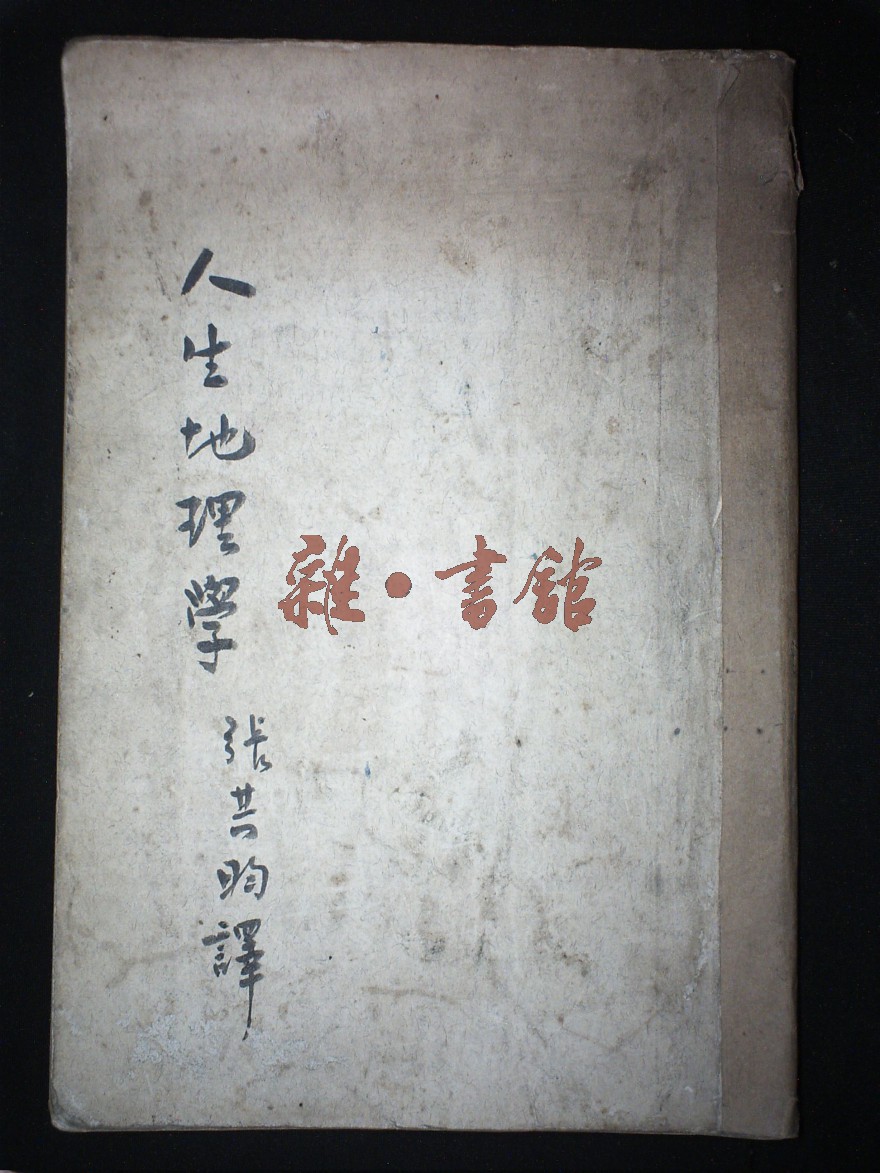 人生地理學
張其昀譯
雜•書舘